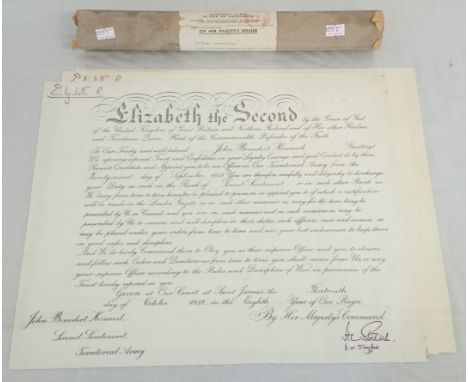 ON HER MAJESTY'S SERVICE
Elizabeth R
Elizabeth the Second by the Grace of God
of the United Kingdom of Great Britain and Northern Ireland and of Her other Realms
and Territories Queen, Head of the Commonwealth, Defender of the Faith.
To Our Trusty and well beloved John Benedict Greeting!
We, reposing especial Trust and Confidence in your Loyalty, Courage, and good Conduct, do by these
Presents Constitute and Appoint you to be an Officer in Our Territorial Army from the
day of September 1959. You are therefore carefully and diligently to discharge
your Duty as such in the Rank of Second Lieutenant or in such other Rank as
We may from time to time hereafter be pleased to promote or appoint you to of which a notification
will be made in the London Gazette, or in such other manner as may for the time being be
prescribed by Us in Council, and you are in such manner and on such occasions as may be
prescribed by Us to exercise and well discipline in their duties such officers, men and women as
may be placed under your orders from time to time and use your best endeavours to keep them
in good order and discipline.
And We do hereby Command them to Obey you as their superior Officer and you to observe
and follow such Orders and Directions as from time to time you shall receive from Us, or any
your superior Officer, according to the Rules and Discipline of War, in pursuance of the
Trust hereby reposed in you.
Given at Our Court, at Saint James's the Thirteenth
day of October 1959 in the Eighth Year of Our Reign
By Her Majesty's Command
John Benedict
Second Lieutenant
Territorial Army